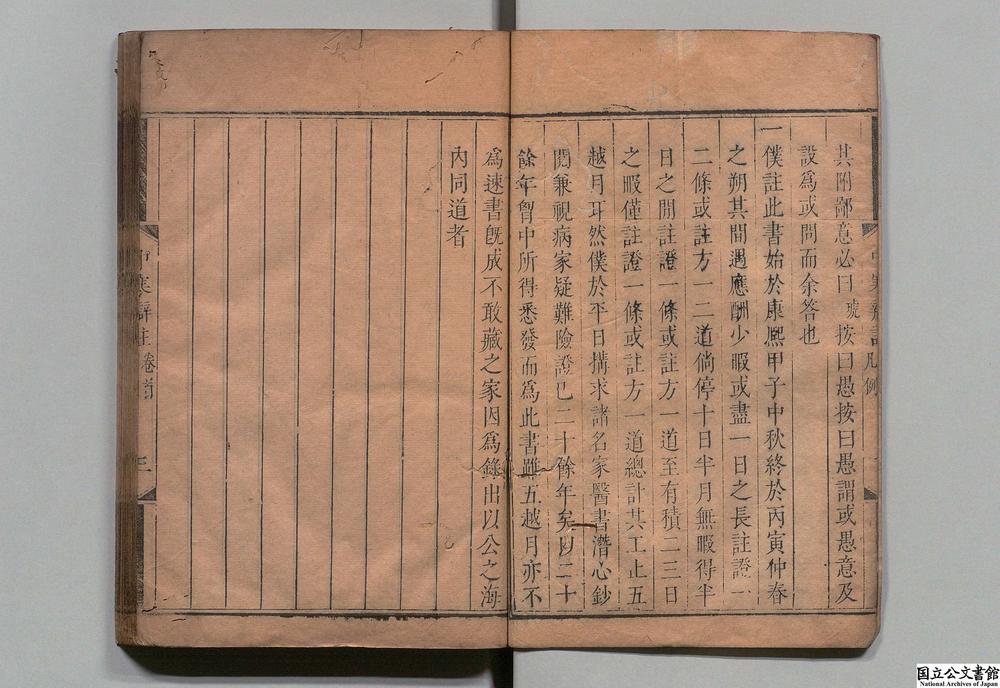 其附鄙意必曰琥按曰愚按曰愚謂或愚意及
設爲或問而余答也
一僕註此書始於康熙甲子中秋終於丙寅仲春
之朔其間遇應酬少暇或盡一日之長註證一
二條或註方一二道倘停十日半月無暇得半
日之閒註證一條或註方一道至有積二三日
之暇僅註證一條或註方一道總計其工止五
越月耳然僕於平日搆求諸名家醫書潛心鈔
閱兼視病家疑難險證已二十餘年矣以二十
餘年胷中所得悉發而爲此書雖五越月亦不
爲速書旣成不敢藏之家因爲錄出以公之海
內同道者
中寒辯註凡例
中寒辯註卷首
三
国立公文書館
National Archives of Japan